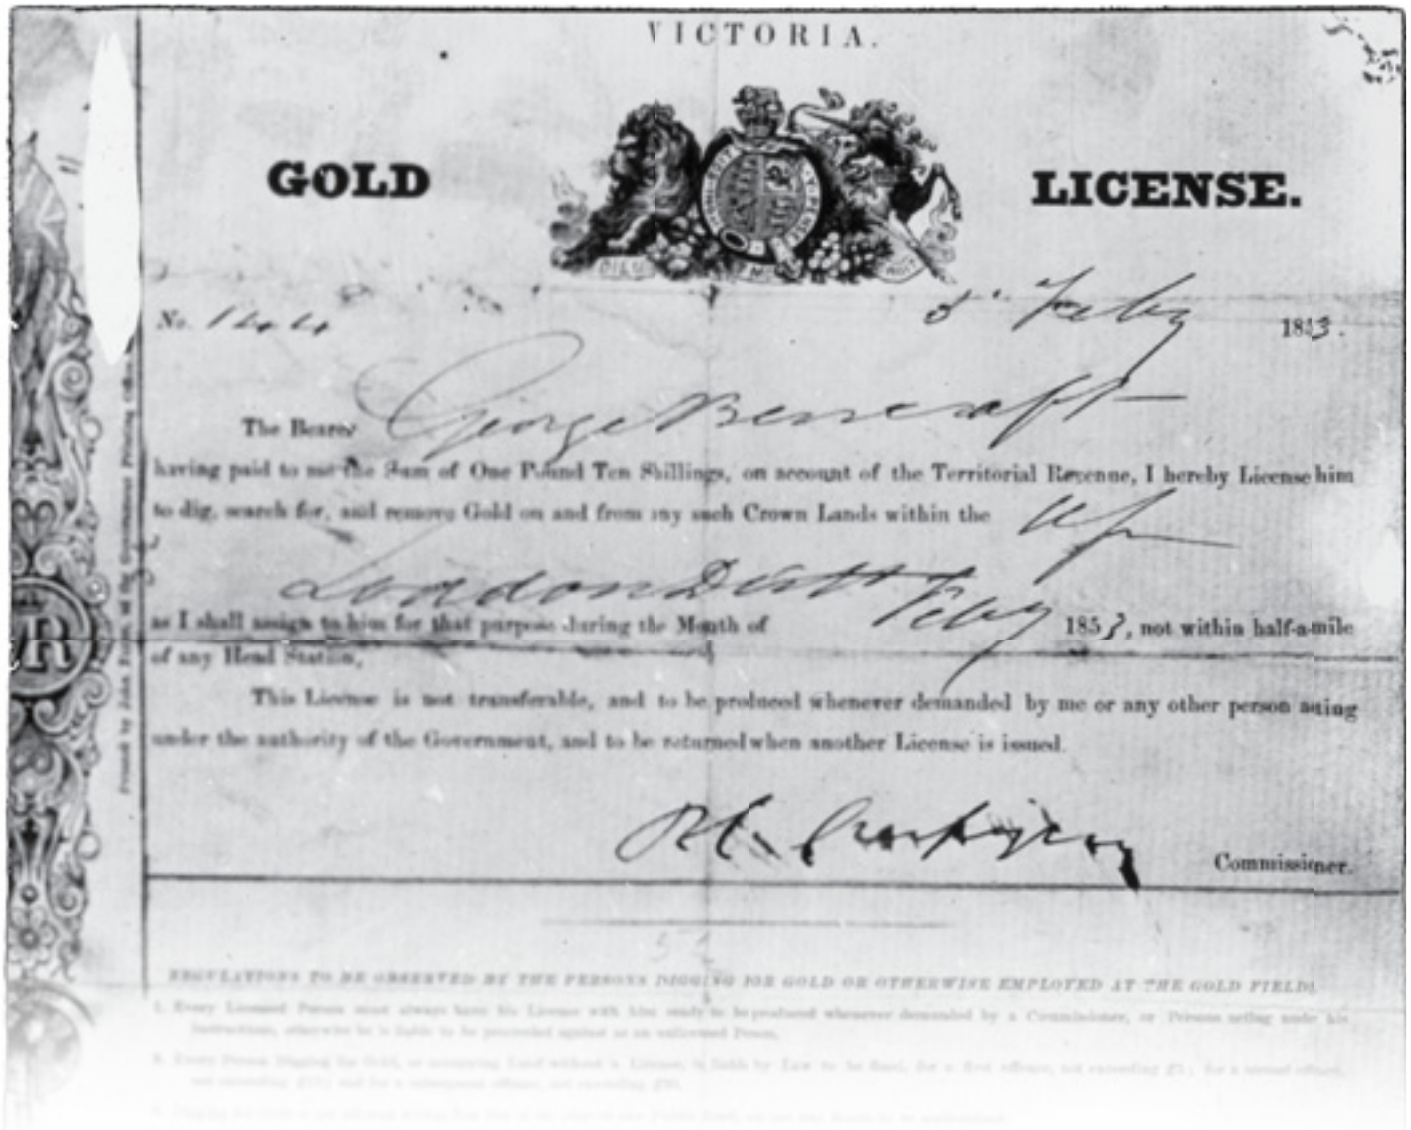 VICTORIA.
GOLD LICENSE.
No. 1444 5th Feby 1853.
The Bearer George Bencraft
having paid to me the Sum of One Pound Ten Shillings, on account of the Territorial Revenue, I hereby License him
to dig, search for, and remove Gold on and from any such Crown Lands within the
Loddon Distt
as I shall assign to him for that purpose during the Month of Feby 1853, not within half-a-mile
of any Head Station,
This License is not transferable, and to be produced whenever demanded by me or any other person acting
under the authority of the Government, and to be returned when another License is issued.
Commissioner.
Printed by John Ferres, at the Government Printing Office,
REGULATIONS TO BE OBSERVED BY THE PERSONS DIGGING FOR GOLD OR OTHERWISE EMPLOYED AT THE GOLD FIELDS.
1. Every Licensed Person must always have his License with him ready to be produced whenever demanded by a Commissioner, or Persons acting under his
instructions, otherwise he is liable to be proceeded against as an unlicensed Person.
2. Every Person Digging for Gold, or occupying Land without a License, is liable by Law to be fined, for a first offence, not exceeding £5; for a second offence,
not exceeding £15; and for a subsequent offence, not exceeding £30.